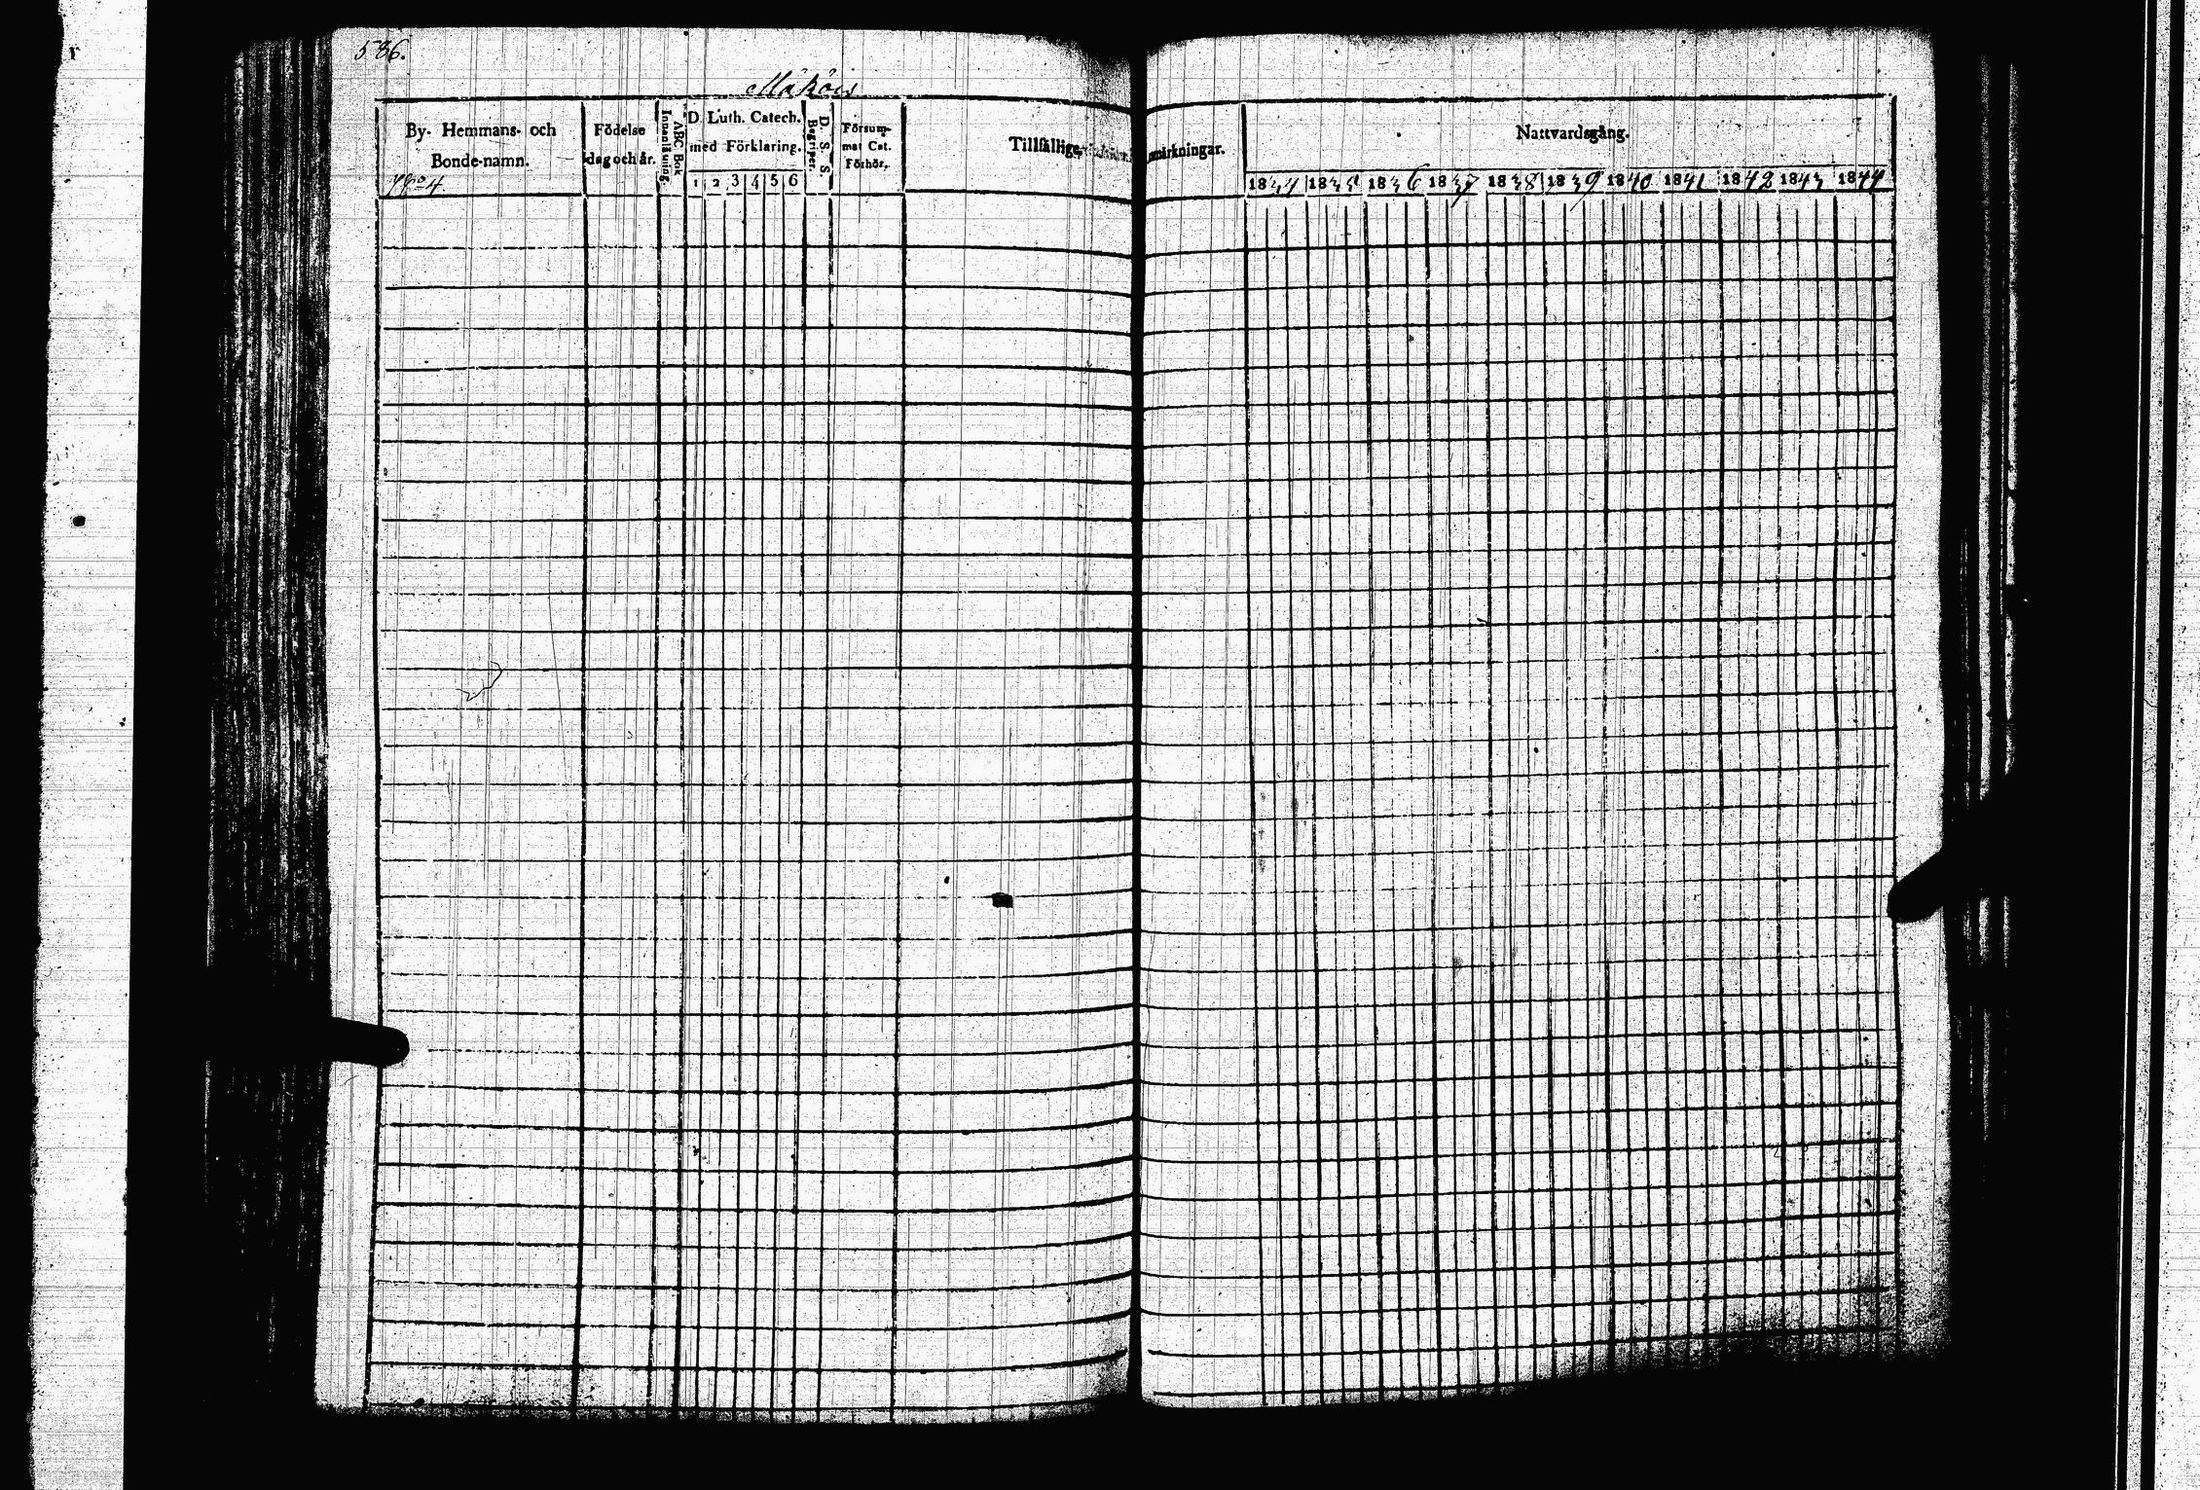 586.
Måköis
By- Hemmans- och
Bonde-namn.
No 4.
Födelse
dag och år.
ABC Bok
Innanläsning.
D. Luth. Catech.
med Förklaring.
1 2 3 4 5 6
D. S. S.
Begriper.
Försum-
mat Cat.
Förhör.
Tillfällige
anmärkningar.
Nattvardsgång.
1834 1835 1836 1837 1838 1839 1840 1841 1842 1843 1844